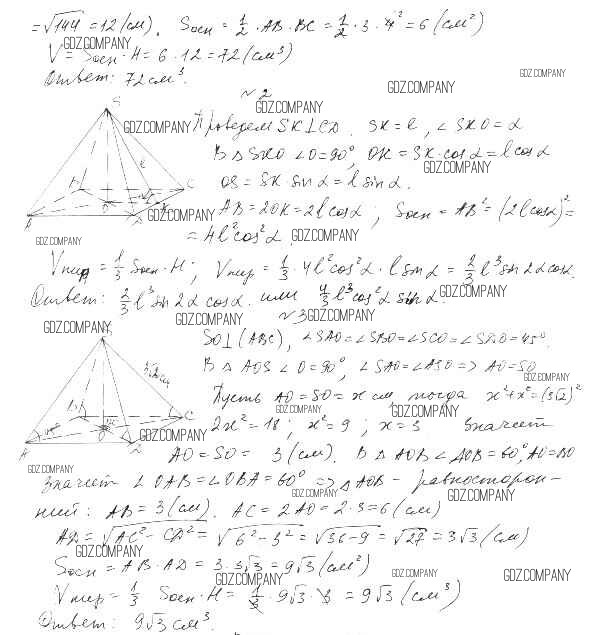 = √144 = 12 (см). Sосн = 1/2 · AB · BC = 1/2 · 3 · 4² = 6 (см²)
GDZ.COMPANY
V = Sосн · H = 6 · 12 = 72 (см³)
GDZ.COMPANY
Ответ: 72 см³.
GDZ.COMPANY
№ 2
GDZ.COMPANY
S
GDZ.COMPANY
Проведем SK⊥CD. SK = l, ∠SKO = α
В △SKO ∠O = 90°, OK = SK · cos α = l cos α
GDZ.COMPANY
OS = SK · sin α = l sin α.
AB = 2OK = 2l cos α; Sосн = AB² = (2l cos α)² =
GDZ.COMPANY
= 4l² cos² α.
GDZ.COMPANY
GDZ.COMPANY
Vпир = 1/3 Sосн · H; Vпир = 1/3 · 4l² cos² α · l sin α = 2/3 l³ sin 2α cos α.
Ответ: 2/3 l³ sin 2α cos α. или 4/3 l³ cos² α sin α.
GDZ.COMPANY
GDZ.COMPANY
№ 3
GDZ.COMPANY
GDZ.COMPANY
SO⊥(ABC), ∠SAO = ∠SBO = ∠SCO = ∠SDO = 45°.
В △AOS ∠O = 90°, ∠SAO = ∠ASO => AO = SO
GDZ.COMPANY
Пусть AO = SO = x см, тогда x² + x² = (3√2)²
GDZ.COMPANY
GDZ.COMPANY
2x² = 18; x² = 9; x = 3 Значит
AO = SO = 3 (см). В △AOB ∠AOB = 60°, AO = BO
GDZ.COMPANY
Значит ∠OAB = ∠OBA = 60° => △AOB - равносторон-
GDZ.COMPANY
GDZ.COMPANY
ний: AB = 3 (см). AC = 2AO = 2 · 3 = 6 (см)
AD = √AC² - CD² = √6² - 3² = √36 - 9 = √27 = 3√3 (см)
GDZ.COMPANY
Sосн = AB · AD = 3 · 3√3 = 9√3 (см²)
GDZ.COMPANY
GDZ.COMPANY
GDZ.COMPANY
Vпир = 1/3 Sосн · H = 1/3 · 9√3 · 3 = 9√3 (см³)
GDZ.COMPANY
Ответ: 9√3 см³.